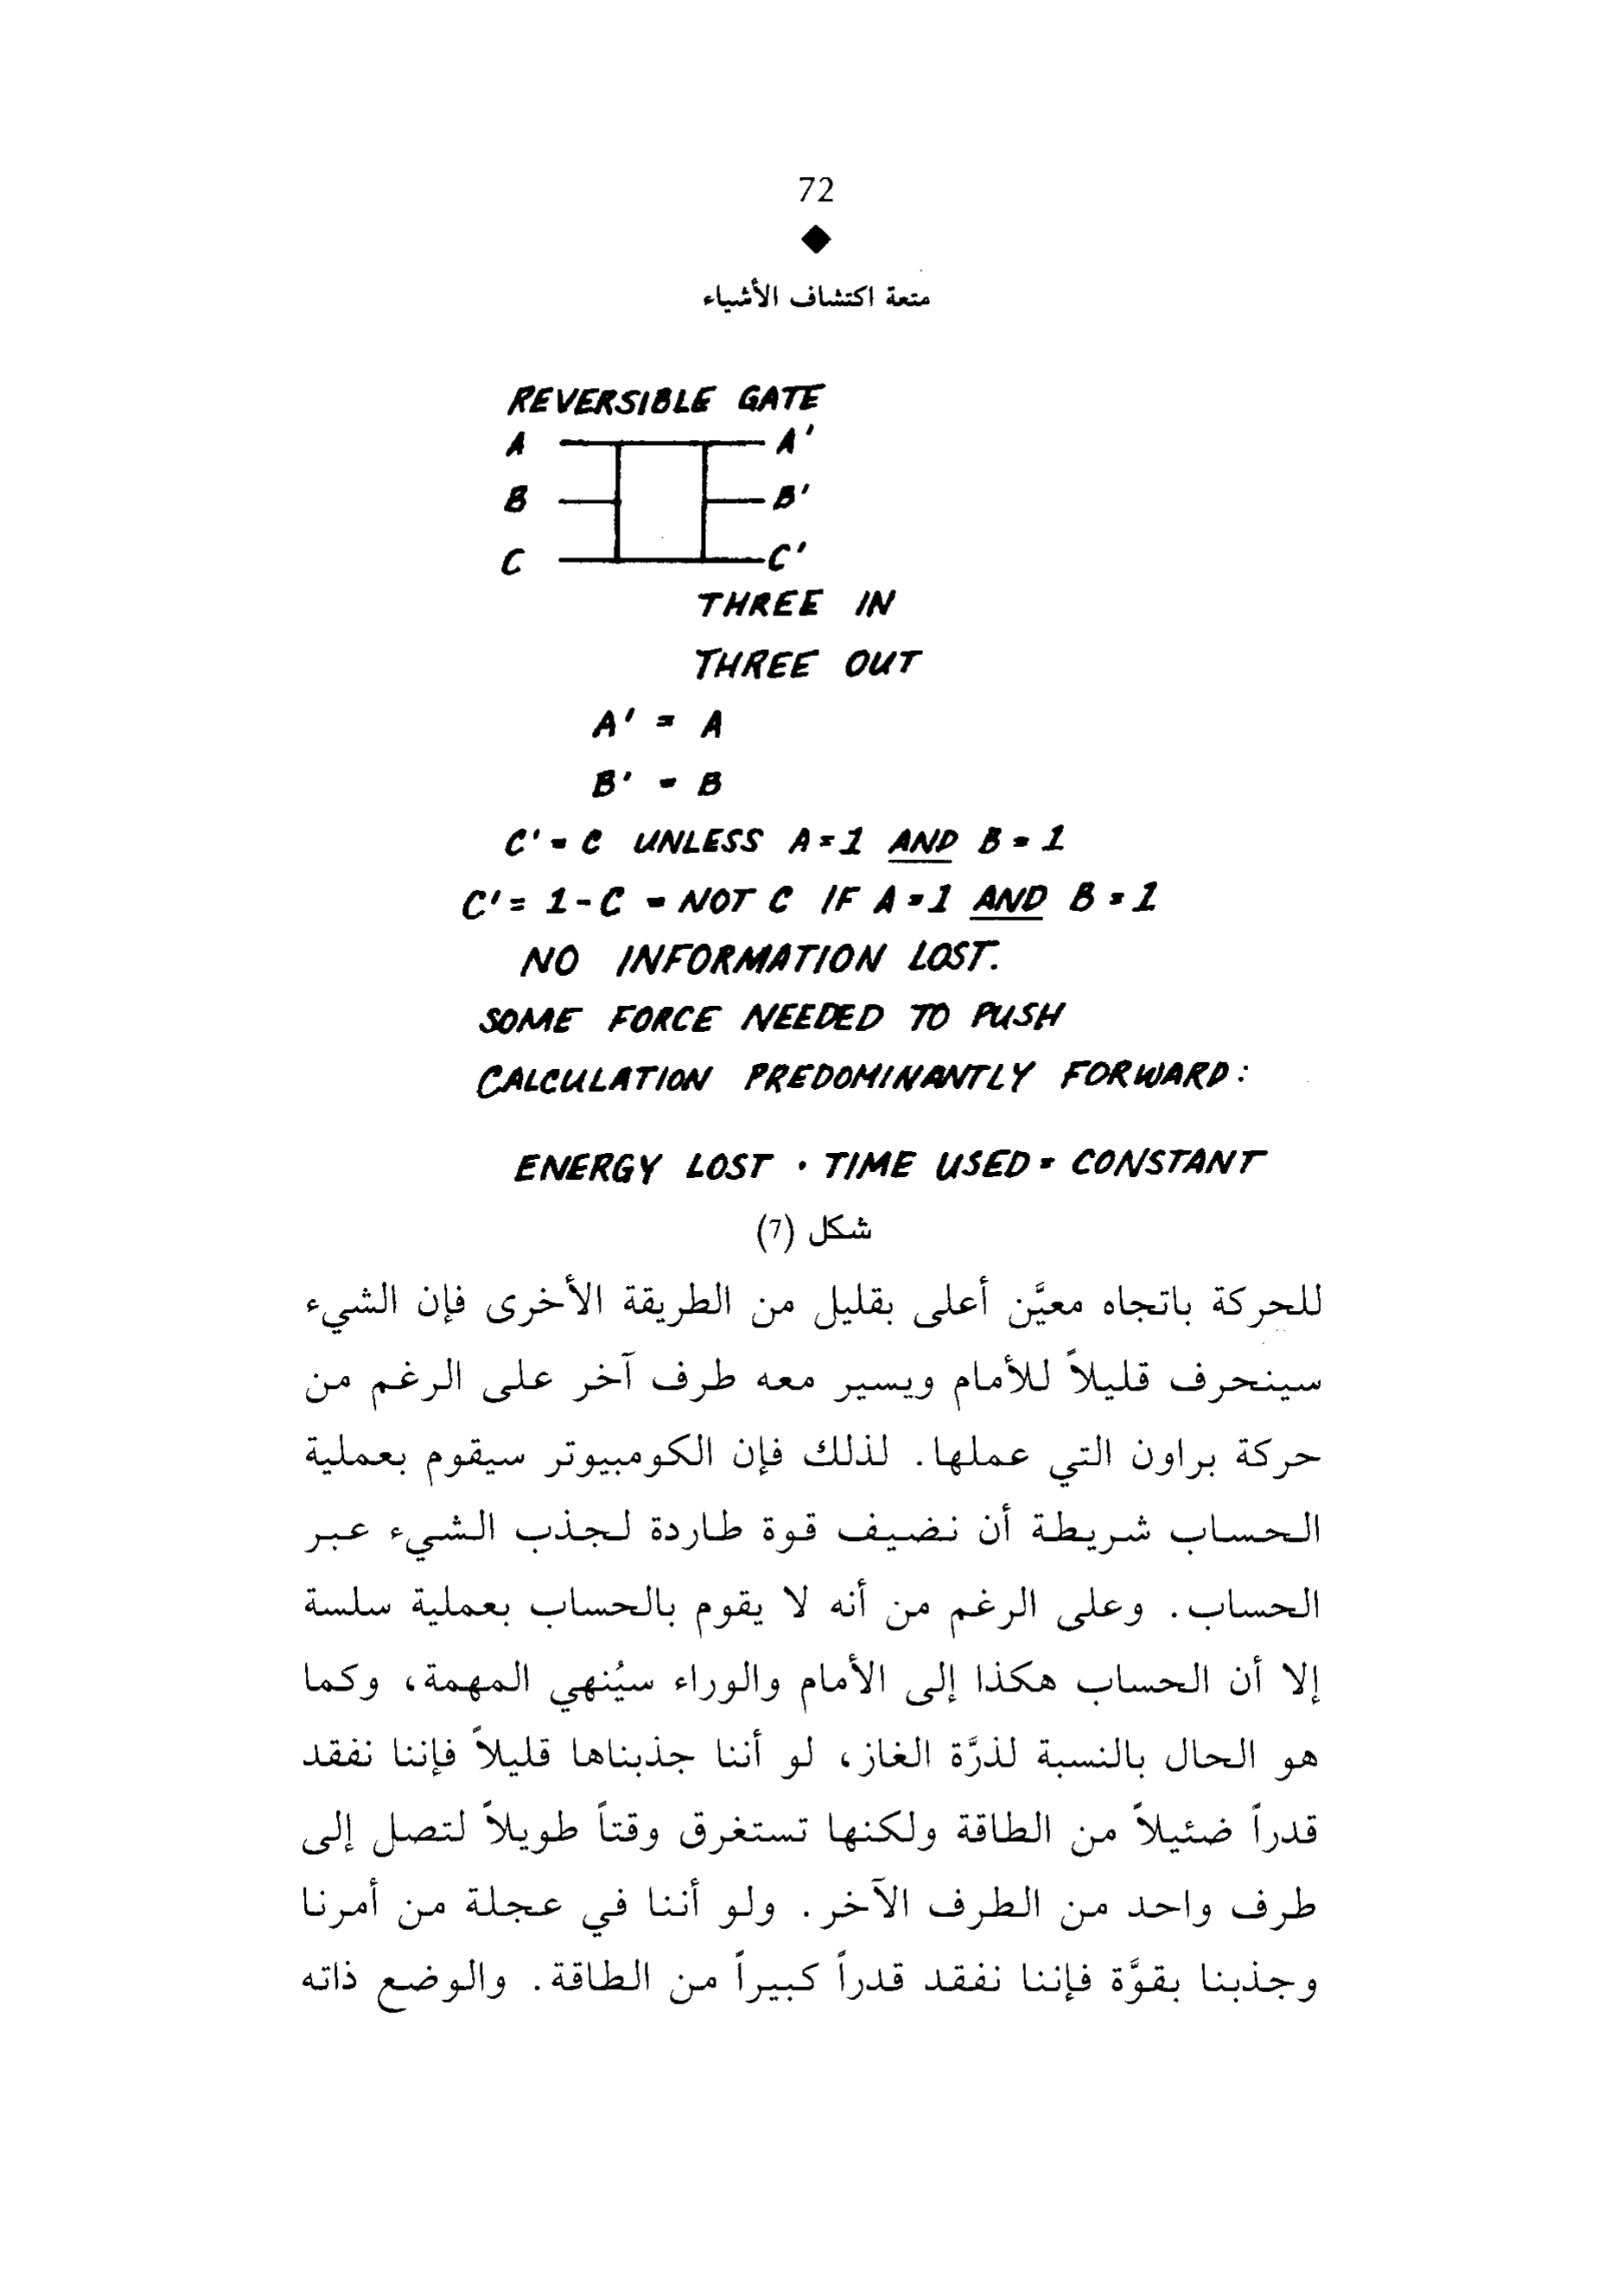 72
متعة اكتشاف الأشياء
REVERSIBLE GATE
A A'
B B'
C C'
THREE IN
THREE OUT
A' = A
B' = B
C' = C UNLESS A = 1 AND B = 1
C' = 1 - C = NOT C IF A = 1 AND B = 1
NO INFORMATION LOST.
SOME FORCE NEEDED TO PUSH
CALCULATION PREDOMINANTLY FORWARD:
ENERGY LOST · TIME USED = CONSTANT
شكل (7)
للحركة باتجاه معيَّن أعلى بقليل من الطريقة الأخرى فإن الشيء
سينحرف قليلاً للأمام ويسير معه طرف آخر على الرغم من
حركة براون التي عملها. لذلك فإن الكومبيوتر سيقوم بعملية
الحساب شريطة أن نضيف قوة طاردة لجذب الشيء عبر
الحساب. وعلى الرغم من أنه لا يقوم بالحساب بعملية سلسة
إلا أن الحساب هكذا إلى الأمام والوراء سيُنهي المهمة، وكما
هو الحال بالنسبة لذرَّة الغاز، لو أننا جذبناها قليلاً فإننا نفقد
قدراً ضئيلاً من الطاقة ولكنها تستغرق وقتاً طويلاً لتصل إلى
طرف واحد من الطرف الآخر. ولو أننا في عجلة من أمرنا
وجذبنا بقوَّة فإننا نفقد قدراً كبيراً من الطاقة. والوضع ذاته